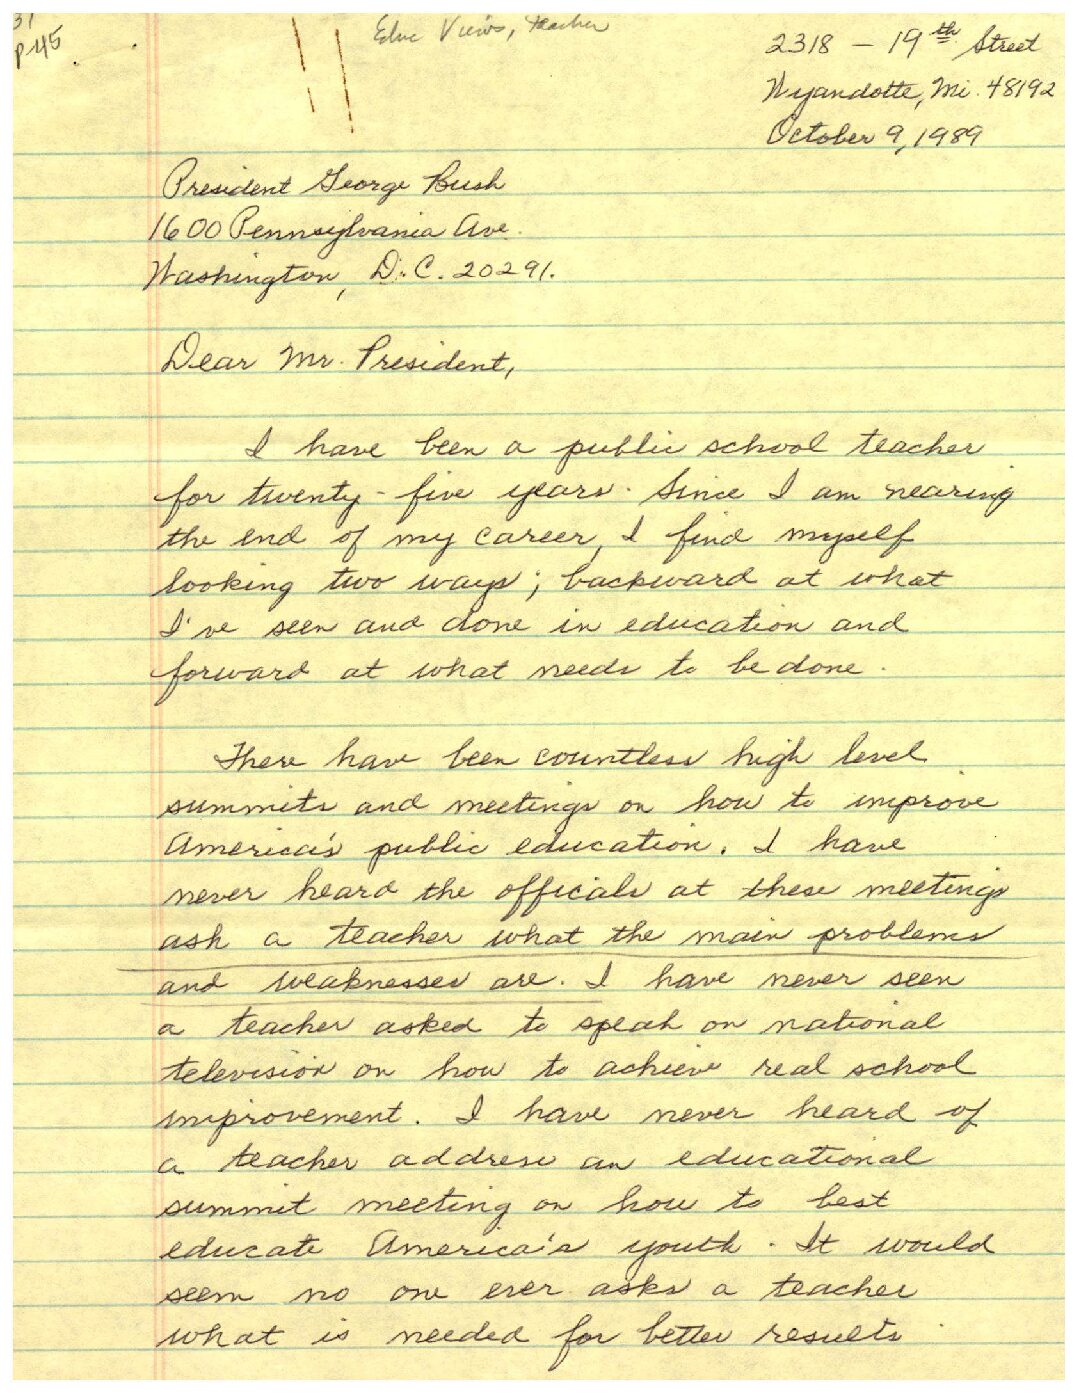 31
P-45
Educ Views, teacher
2318 - 19th Street
Wyandotte, Mi. 48192
October 9, 1989
President George Bush
1600 Pennsylvania Ave.
Washington, D.C. 20291.
Dear Mr. President,
I have been a public school teacher
for twenty-five years. Since I am nearing
the end of my career, I find myself
looking two ways; backward at what
I've seen and done in education and
forward at what needs to be done.
There have been countless high level
summits and meetings on how to improve
America's public education. I have
never heard the officals at these meetings
ask a teacher what the main problems
and weaknesses are. I have never seen
a teacher asked to speak on national
television on how to achieve real school
improvement. I have never heard of
a teacher address an educational
summit meeting on how to best
educate America's youth. It would
seem no one ever asks a teacher
what is needed for better results.